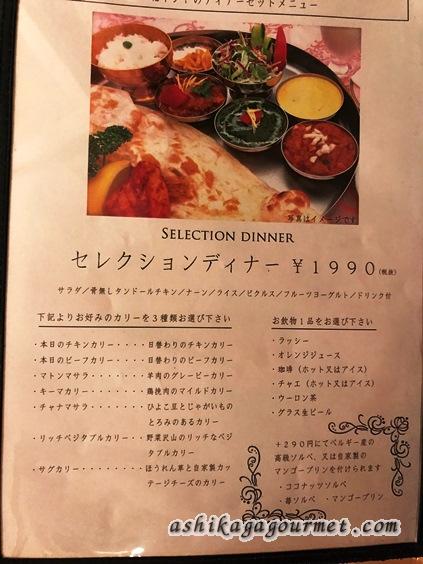 のディナーセットメニュー
写真はイメージです
SELECTION DINNER
セレクションディナー ￥1990(税抜)
サラダ/骨無しタンドールチキン/ナーン/ライス/ピクルス/フルーツヨーグルト/ドリンク付
下記よりお好みのカリーを3種類お選び下さい
・本日のチキンカリー・・・・日替わりのチキンカリー
・本日のビーフカリー・・・・日替わりのビーフカリー
・マトンマサラ・・・・・・・羊肉のグレービーカリー
・キーマカリー・・・・・・・鶏挽肉のマイルドカリー
・チャナマサラ・・・・・・・ひよこ豆とじゃがいもの
とろみのあるカリー
・リッチベジタブルカリー・・野菜沢山のリッチなベジ
タブルカリー
・サグカリー・・・・・・・・ほうれん草と自家製カッ
テージチーズのカリー
お飲物1品をお選び下さい
・ラッシー
・オレンジジュース
・珈琲 (ホット又はアイス)
・チャエ (ホット又はアイス)
・ウーロン茶
・グラス生ビール
＋290円にてベルギー産の
高級ソルベ、又は自家製の
マンゴープリンを付けられます
・ココナッツソルベ
・苺ソルベ ・マンゴープリン
ashikagagourmet.com